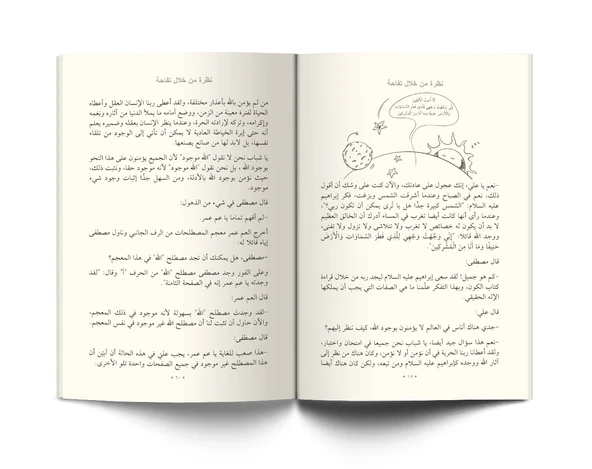 نظرة من خلال تفاحة
لَا أُحِبُّ الْآفِلِينَ
إِنِّي وَجَّهْتُ وَجْهِيَ لِلَّذِي فَطَرَ السَّمَاوَاتِ
وَالْأَرْضَ حَنِيفًا وَمَا أَنَا مِنَ الْمُشْرِكِينَ
-نعم يا علي، إنك عجول على عادتك، والآن كنت على وشك أن أقول
ذلك، نعم في الصباح وعندما أشرقت الشمس وبزغت، فكر إبراهيم
عليه السلام: "الشمس كبيرة جدًّا هل يا تُرى يمكن أن تكون ربي؟"،
وعندما رأى أنها كانت أيضا تغرب في المساء أدرك أن الخالق العظيم
لا بد أن يكون له خصائص لا تغرب ولا تتلاشى ولا تزول ولا تفنى،
ووجد الله قائلا: "إِنِّي وَجَّهْتُ وَجْهِيَ لِلَّذِي فَطَرَ السَّمَاوَاتِ وَالْأَرْضَ
حَنِيفًا وَمَا أَنَا مِنَ الْمُشْرِكِينَ".
قال مصطفى:
-كم هو جميل! لقد سعى إبراهيم عليه السلام ليجد ربه من خلال قراءة
كتاب الكون، وبهذا التفكر علّمنا ما هي الصفات التي يجب أن يملكها
الإله الحقيقي.
قال علي:
-جدي هناك أناس في العالم لا يؤمنون بوجود الله، كيف ننظر إليهم؟
-نعم هذا سؤال جيد أيضا، يا شباب نحن جميعا في امتحان واختبار،
ولقد أعطانا ربنا الحرية في أن نؤمن أو لا نؤمن، وكان هناك من نظر إلى
آثار الله ووجده كإبراهيم عليه السلام ومن تبعه، ولكن كان هناك أيضا
• ١٩ •
نظرة من خلال تفاحة
من لم يؤمن بالله بأعذار مختلفة، ولقد أعطى ربنا الإنسان العقل وأعطاه
الحياة لفترة معينة من الزمن، ووضع أمامه ما يملأ الدنيا من آثاره ونِعَمِه
وإكرامه، وتركه لإرادته الحرة، وعندما ينظر الإنسان بعقله وضميره يعلم
أنه حتى إبرة الخياطة العادية لا يمكن أن تأتي إلى الوجود من تلقاء
نفسها، بل لابد لها من صانع يصنعها.
يا شباب نحن لا نقول "الله موجود" لأن الجميع يؤمنون على هذا النحو
بوجود الله ، بل نحن نقول "الله موجود" لأنه موجود حقا، ونثبت ذلك،
حيث نؤمن بوجود الله بالأدلة، ومن السهل جدًّا إثبات وجود شيء
موجود.
قال مصطفى في شيء من الذهول:
-لم أفهم تماما يا عم عمر.
أخرج العم عمر معجم المصطلحات من الرف الجانبي وناول مصطفى
إياه قائلا له:
-مصطفى، هل يمكنك أن تجد مصطلح "الله" في هذا المعجم؟
وعلى الفور وجد مصطفى مصطلح "الله" من الحرف "أ" وقال: "لقد
وجدته يا عم عمر إنه في الصفحة الثامنة".
قال العم عمر:
-لقد وجدت مصطلح "الله" بسهولة لأنه موجود في ذلك المعجم،
والآن حاول أن تثبت لنا أن مصطلح الله غير موجود في نفس المعجم.
قال مصطفى:
-هذا صعب للغاية يا عم عمر، يجب عليّ في هذه الحالة أن أبيّن أن
هذا المصطلح غير موجود في جميع الصفحات واحدة تلو الأخرى.
• ٢٠ •